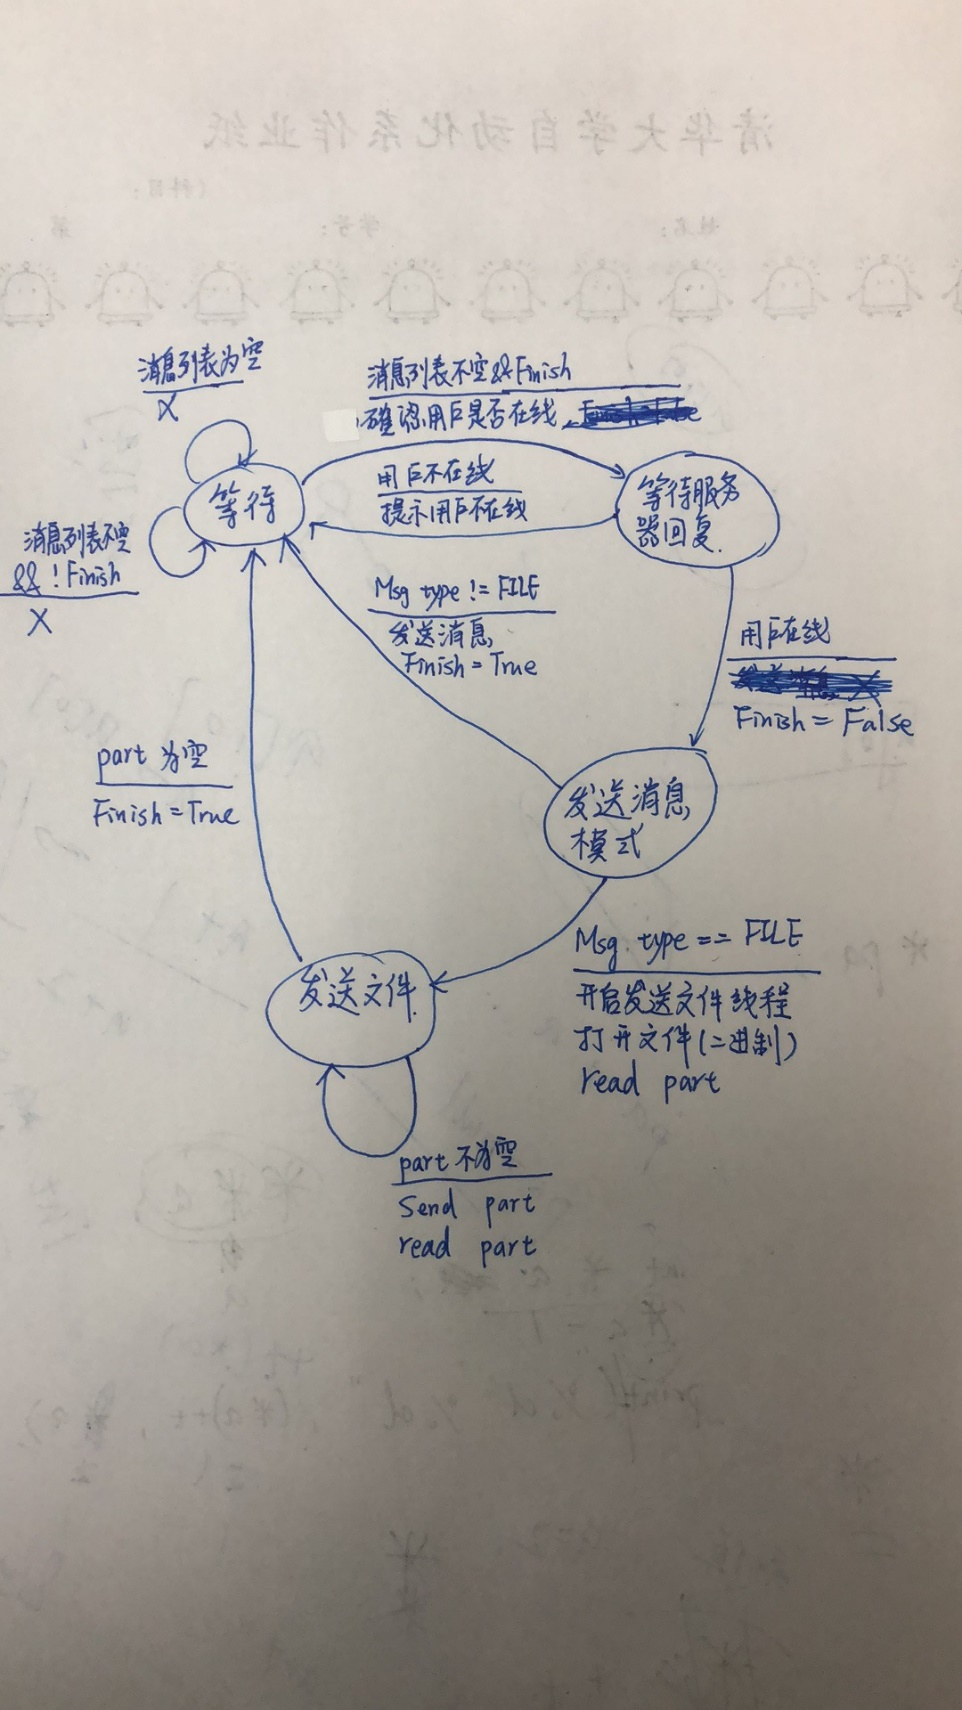 清华大学自动化系作业纸
(科目:
姓名:
学号:
第
消息列表为空
X
消息列表不空&&Finish
确认用户是否在线
用户不在线
提示用户不在线
等待
等待服务
器回复
消息列表不空
&& !Finish
X
Msg type != FILE
发送消息
Finish = True
用户在线
Finish = False
part 为空
Finish = True
发送消息
模式
Msg. type == FILE
开启发送文件线程
打开文件(二进制)
read part
发送文件
part 不为空
Send part
read part